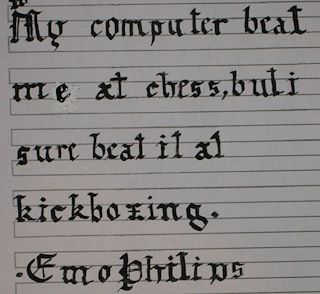 My computer beat
me at chess, but i
sure beat it at
kickboxing.
-Emo Philips